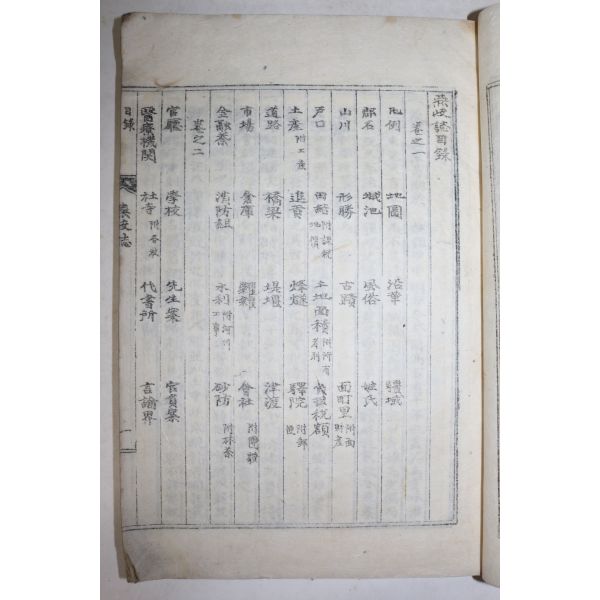 燕岐誌目錄
卷之一
凡例 地圖 沿革 疆域
郡名 城池 風俗 姓氏
山川 形勝 古蹟 面町里 附面財產
戶口 田結 附課税地價 土地面積 附所有 稅額
土產 附工產 進貢 烽燧 驛院 附郵便
道路 橋梁 堤堰 津渡
市場 倉庫 會社
金融業 消防組 水利 附河川工事 砂防 附林業
卷之二
官廳 學校 先生案 官員案
醫療機関 社寺 附各教 代書所 言論界
目錄 燕岐志 一